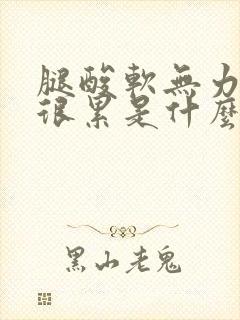 腿酸軟無力
很累是什麼
黑山老鬼